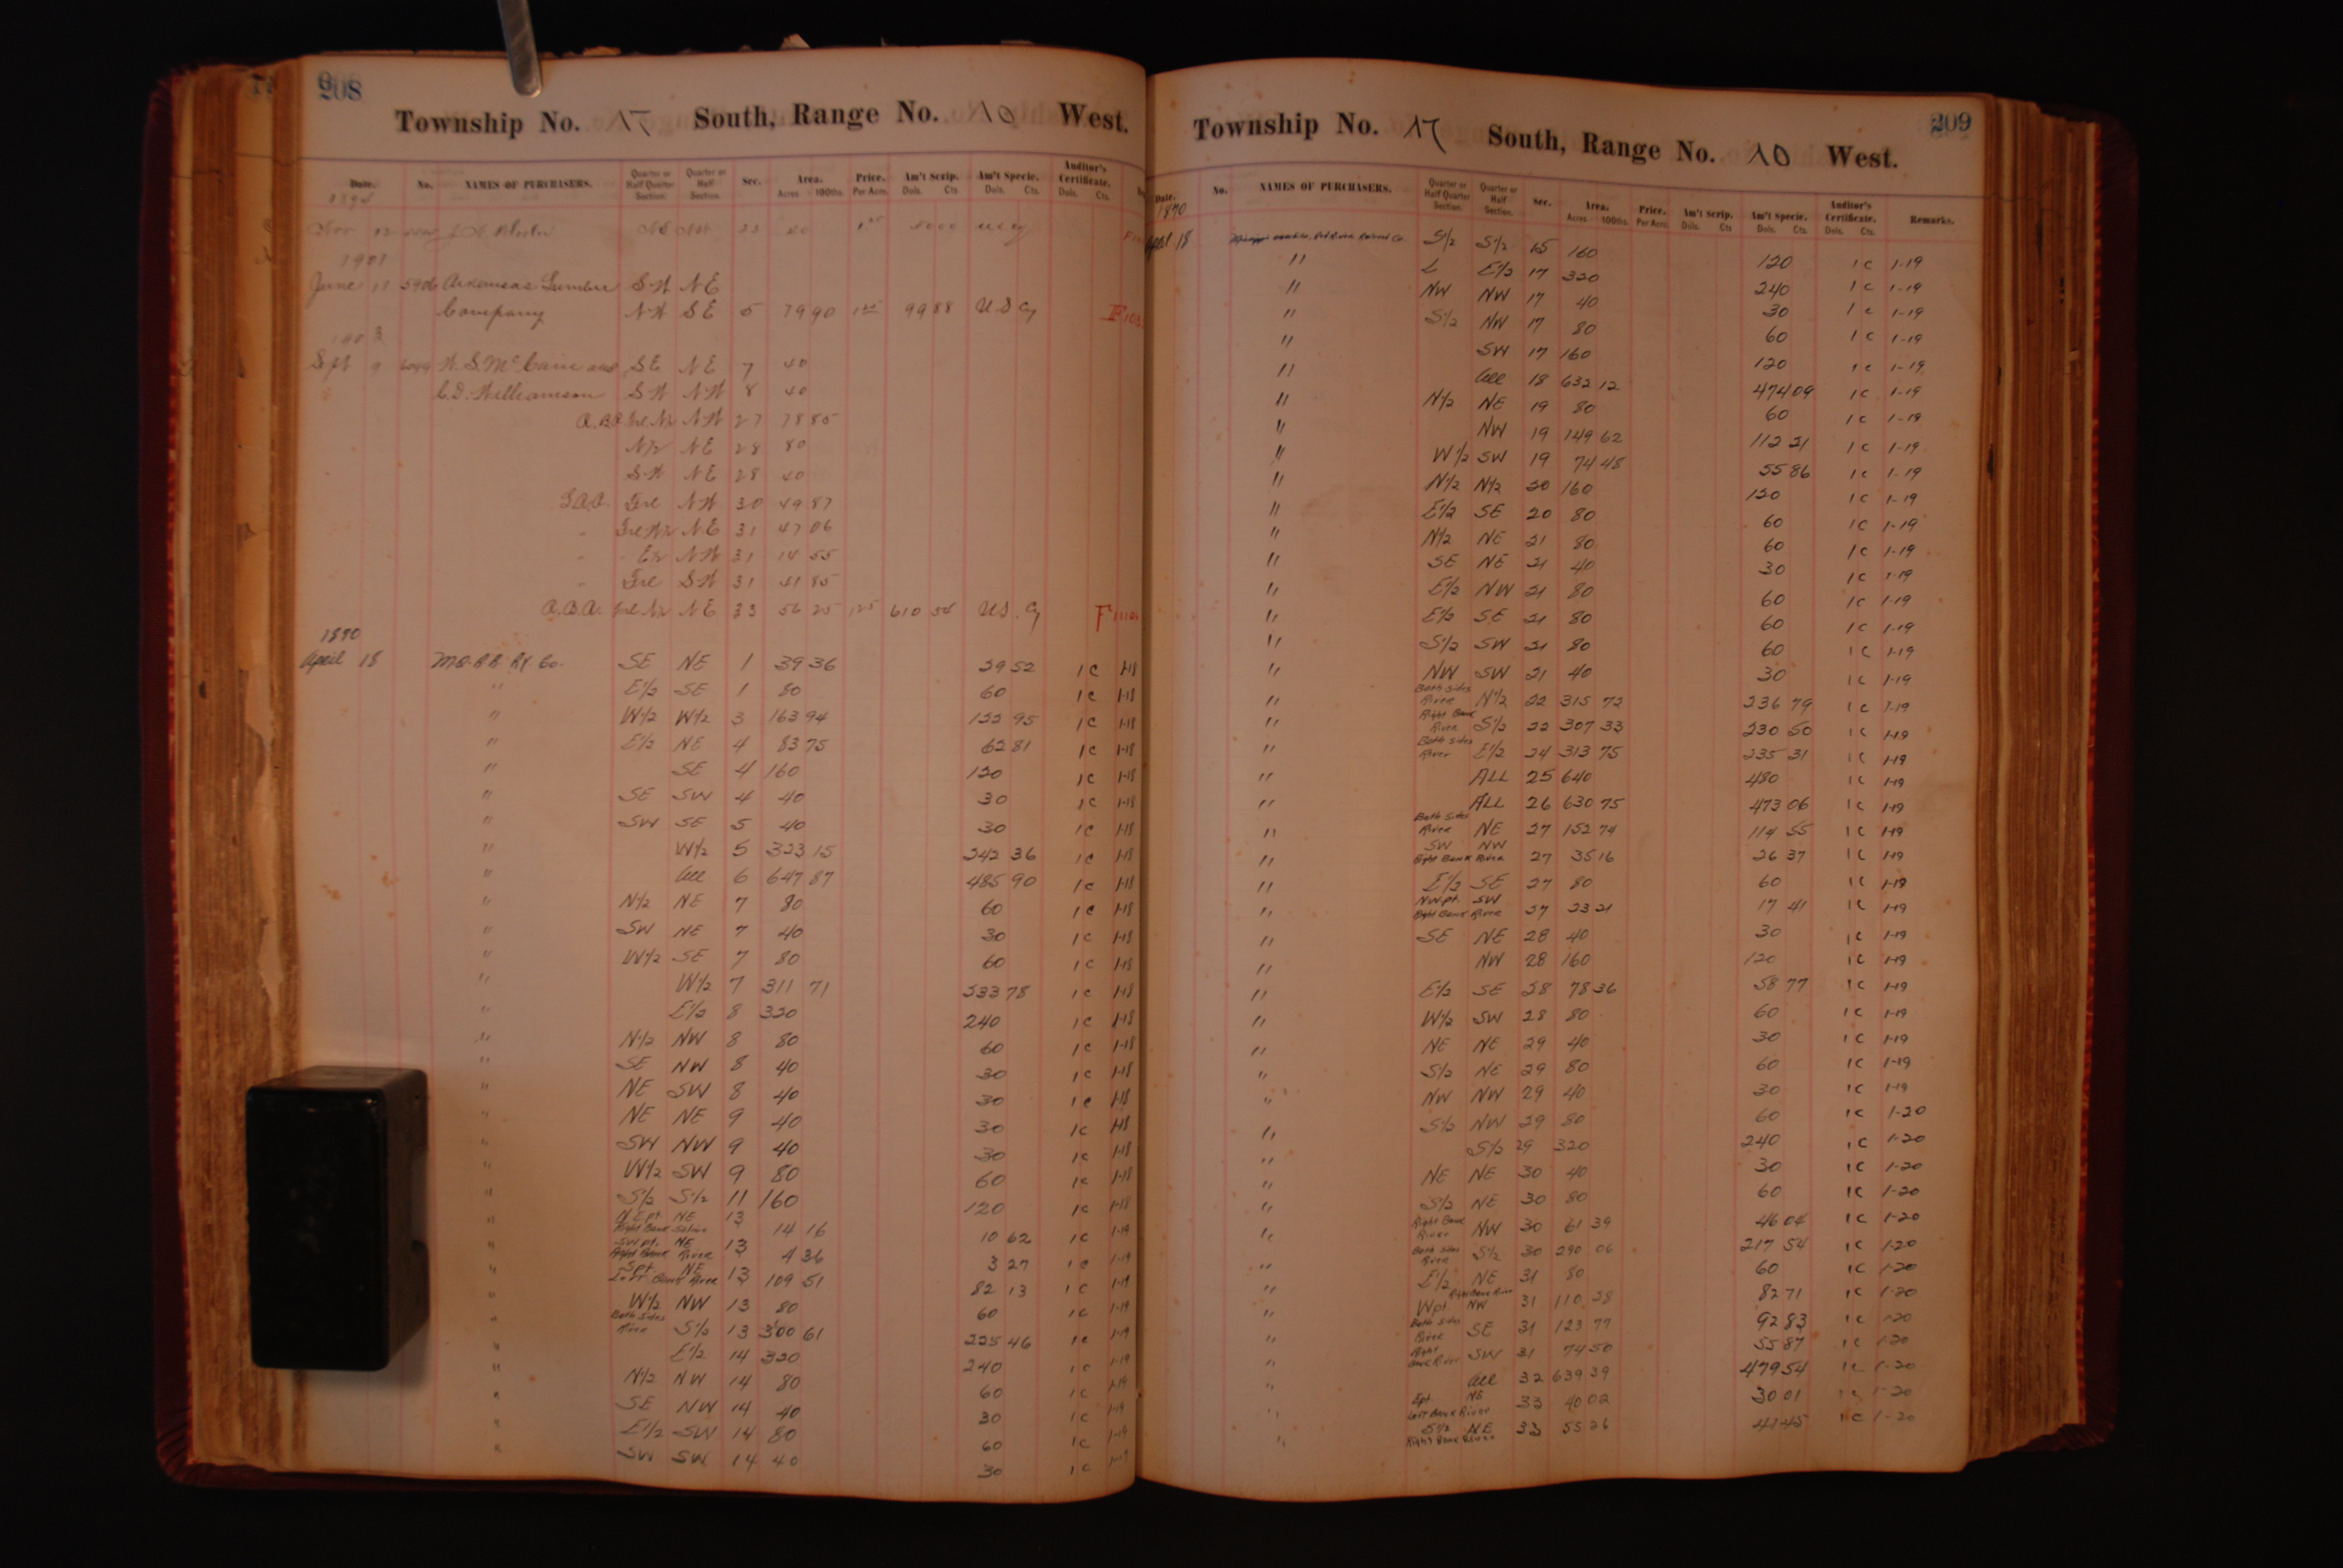 208
Township No. 17 South, Range No. 10 West.
Date. No. NAMES OF PURCHASERS. Quarter or Half Quarter Section. Quarter or Half Section. Sec. Area. Acres 100ths. Price. Per Acre. Am't Scrip. Dols. Cts Am't Specie. Dols. Cts. Auditor's Certificate. Dols. Cts.
Nov 12 J. NE NW 23 40 5000
1901
June 11 5906 Arkansas Lumber SW NE
Company NW SE 5 7990 1 25 99 88 U S Cy
1903
Sept 9 W. S. McCain and SE NE 7 40
C. D. Williamson SW NW 8 40
Frl N½ NW 27 78 85
N½ NE 28 80
SW NE 28 40
Frl NW 30 49 87
Frl NE 31 47 06
" E½ NW 31 14 55
" Frl SW 31 41 85
A.B.A. Frl N½ NE 33 56 25 125 610 54 U.S. Cy
1870
April 18 M.O.&R.R. RY Co. SE NE 1 39 36 29 52 1 C 1-18
" E½ SE 1 80 60 1 C 1-18
" W½ W½ 3 163 94 122 95 1 C 1-18
" E½ NE 4 83 75 62 81 1 C 1-18
" SE 4 160 120 1 C 1-18
" SE SW 4 40 30 1 C 1-18
" SW SE 5 40 30 1 C 1-18
" W½ 5 323 15 242 36 1 C 1-18
" All 6 647 87 485 90 1 C 1-18
" N½ NE 7 80 60 1 C 1-18
" SW NE 7 40 30 1 C 1-18
" W½ SE 7 80 60 1 C 1-18
" W½ 7 311 71 233 78 1 C 1-18
" E½ 8 320 240 1 C 1-18
" N½ NW 8 80 60 1 C 1-18
" SE NW 8 40 30 1 C 1-18
" NE SW 8 40 30 1 C 1-18
" NE NE 9 40 30 1 C 1-18
" SW NW 9 40 30 1 C 1-18
" W½ SW 9 80 60 1 C 1-18
" S½ S½ 11 160 120 1 C 1-18
" NEpt NE Right Bank Saline 13 14 16 10 62 1 C 1-19
" SWpt. NE Right Bank River 13 4 36 3 27 1 C 1-19
" Spt. NE Left Bank River 13 109 51 82 13 1 C 1-19
" W½ NW 13 80 60 1 C 1-19
" Both Sides River S½ 13 300 61 225 46 1 C 1-19
" E½ 14 320 240 1 C 1-19
" N½ NW 14 80 60 1 C 1-19
" SE NW 14 40 30 1 C 1-19
" E½ SW 14 80 60 1 C 1-19
" SW SW 14 40 30 1 C 1-19
209
Township No. 17 South, Range No. 10 West.
Date. No. NAMES OF PURCHASERS. Quarter or Half Quarter Section. Quarter or Half Section. Sec. Area. Acres 100ths. Price. Per Acre. Am't Scrip. Dols. Cts Am't Specie. Dols. Cts. Auditor's Certificate. Dols. Cts. Remarks.
1870
April 18 Red River Railroad Co. S½ S½ 15 160 120 1 C 1-19
" E½ 17 320 240 1 C 1-19
" NW NW 17 40 30 1 C 1-19
" S½ NW 17 80 60 1 C 1-19
" SW 17 160 120 1 C 1-19
" All 18 632 12 474 09 1 C 1-19
" N½ NE 19 80 60 1 C 1-19
" NW 19 149 62 112 21 1 C 1-19
" W½ SW 19 74 48 55 86 1 C 1-19
" N½ N½ 20 160 120 1 C 1-19
" E½ SE 20 80 60 1 C 1-19
" N½ NE 21 80 60 1 C 1-19
" SE NE 21 40 30 1 C 1-19
" E½ NW 21 80 60 1 C 1-19
" E½ SE 21 80 60 1 C 1-19
" S½ SW 21 80 60 1 C 1-19
" NW SW 21 40 30 1 C 1-19
" Both Sides River N½ 22 315 72 236 79 1 C 1-19
" Right Bank River S½ 22 307 33 230 50 1 C 1-19
" Both Sides River E½ 24 313 75 235 31 1 C 1-19
" ALL 25 640 480 1 C 1-19
" ALL 26 630 75 473 06 1 C 1-19
" Both Sides River NE 27 152 74 114 55 1 C 1-19
" SW NW Right Bank River 27 35 16 26 37 1 C 1-19
" E½ SE 27 80 60 1 C 1-19
" NWpt. SW Right Bank River 27 23 21 17 41 1 C 1-19
" SE NE 28 40 30 1 C 1-19
" NW 28 160 120 1 C 1-19
" E½ SE 28 78 36 58 77 1 C 1-19
" W½ SW 28 80 60 1 C 1-19
" NE NE 29 40 30 1 C 1-19
" S½ NE 29 80 60 1 C 1-19
" NW NW 29 40 30 1 C 1-19
" S½ NW 29 80 60 1 C 1-20
" S½ 29 320 240 1 C 1-20
" NE NE 30 40 30 1 C 1-20
" S½ NE 30 80 60 1 C 1-20
" Right Bank River NW 30 61 39 46 04 1 C 1-20
" Both Sides River S½ 30 290 06 217 54 1 C 1-20
" E½ NE 31 80 60 1 C 1-20
" Wpt Right Bank River NW 31 110 28 82 71 1 C 1-20
" Both Sides River SE 31 123 77 92 83 1 C 1-20
" Right Bank River SW 31 74 50 55 87 1 C 1-20
" All 32 639 39 479 54 1 C 1-20
" Ept. NE Left Bank River 33 40 02 30 01 1 C 1-20
" S½ NE Right Bank River 33 55 26 41 45 1 C 1-20